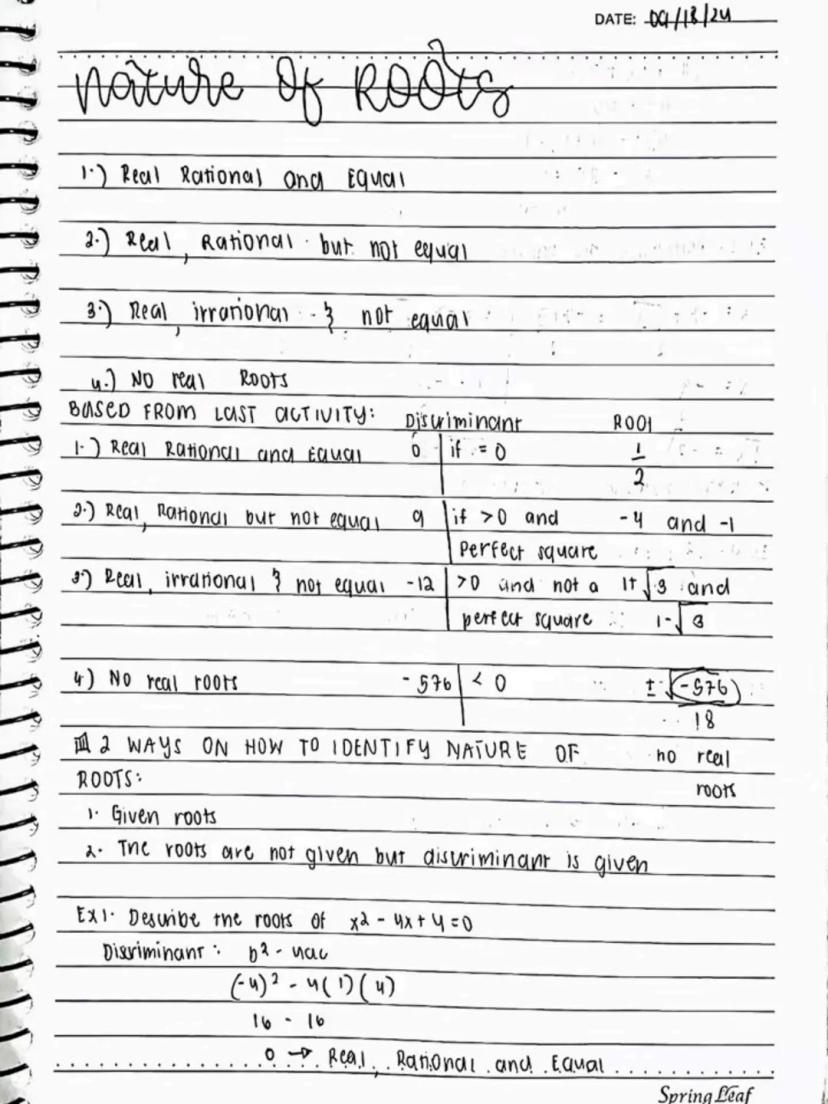 DATE: 09/18/24
Nature of Roots
1.) Real Rational and Equal
2.) Real, Rational but not equal
3.) Real, irrational & not equal
4.) No real Roots
BASED FROM LAST ACTIVITY: Discriminant ROOT
1.) Real Rational and Equal 0 if = 0 1/2
2.) Real, Rational but not equal 9 if >0 and -4 and -1
perfect square
3.) Real, irrational & not equal -12 >0 and not a 1+√3 and
perfect square 1-√3
4) No real roots -576 < 0 ±√-576
18
2 WAYS ON HOW TO IDENTIFY NATURE OF no real
ROOTS: roots
1. Given roots
2. The roots are not given but discriminant is given
Ex1. Describe the roots of x2 - 4x + 4 = 0
Discriminant: b² - 4ac
(-4)² - 4(1)(4)
16 - 16
0 → Real, Rational and Equal
Spring Leaf